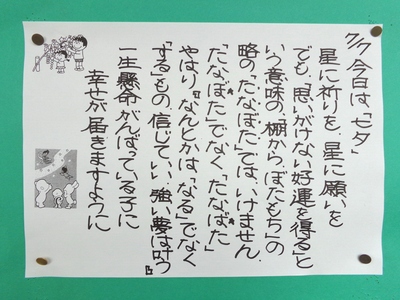 7/7 今日は「七夕」
星に祈りを、星に願いを
でも、思いがけない好運を得る」と
いう意味の、「棚から、ぼたもち」の
略の「たなぼた」では、いけません。
「たなぼた」でなく「たなばた」
やはり「なんとかは、なる」でなく
「する」もの 信じていい 強い夢は叶う
一生懸命がんばっている子に
幸せが届きますように